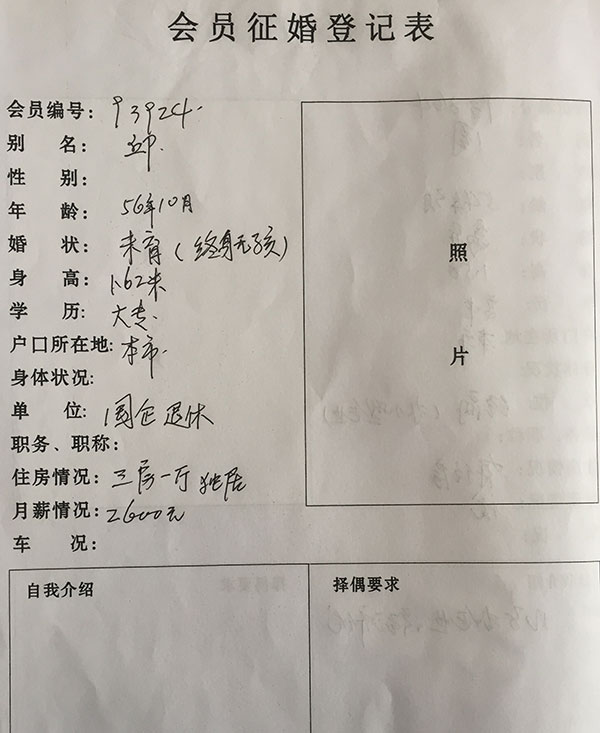 会员征婚登记表
会员编号: 93924.
别 名: 邱.
性 别:
年 龄: 56年10月
婚 状: 未育(终身无孩)
身 高: 1.62米
学 历: 大专.
户口所在地: 本市.
身体状况:
单 位: 国企退休
职务、职称:
住房情况: 三房一厅 独居
月薪情况: 2600元
车 况:
照
片
自我介绍
择偶要求